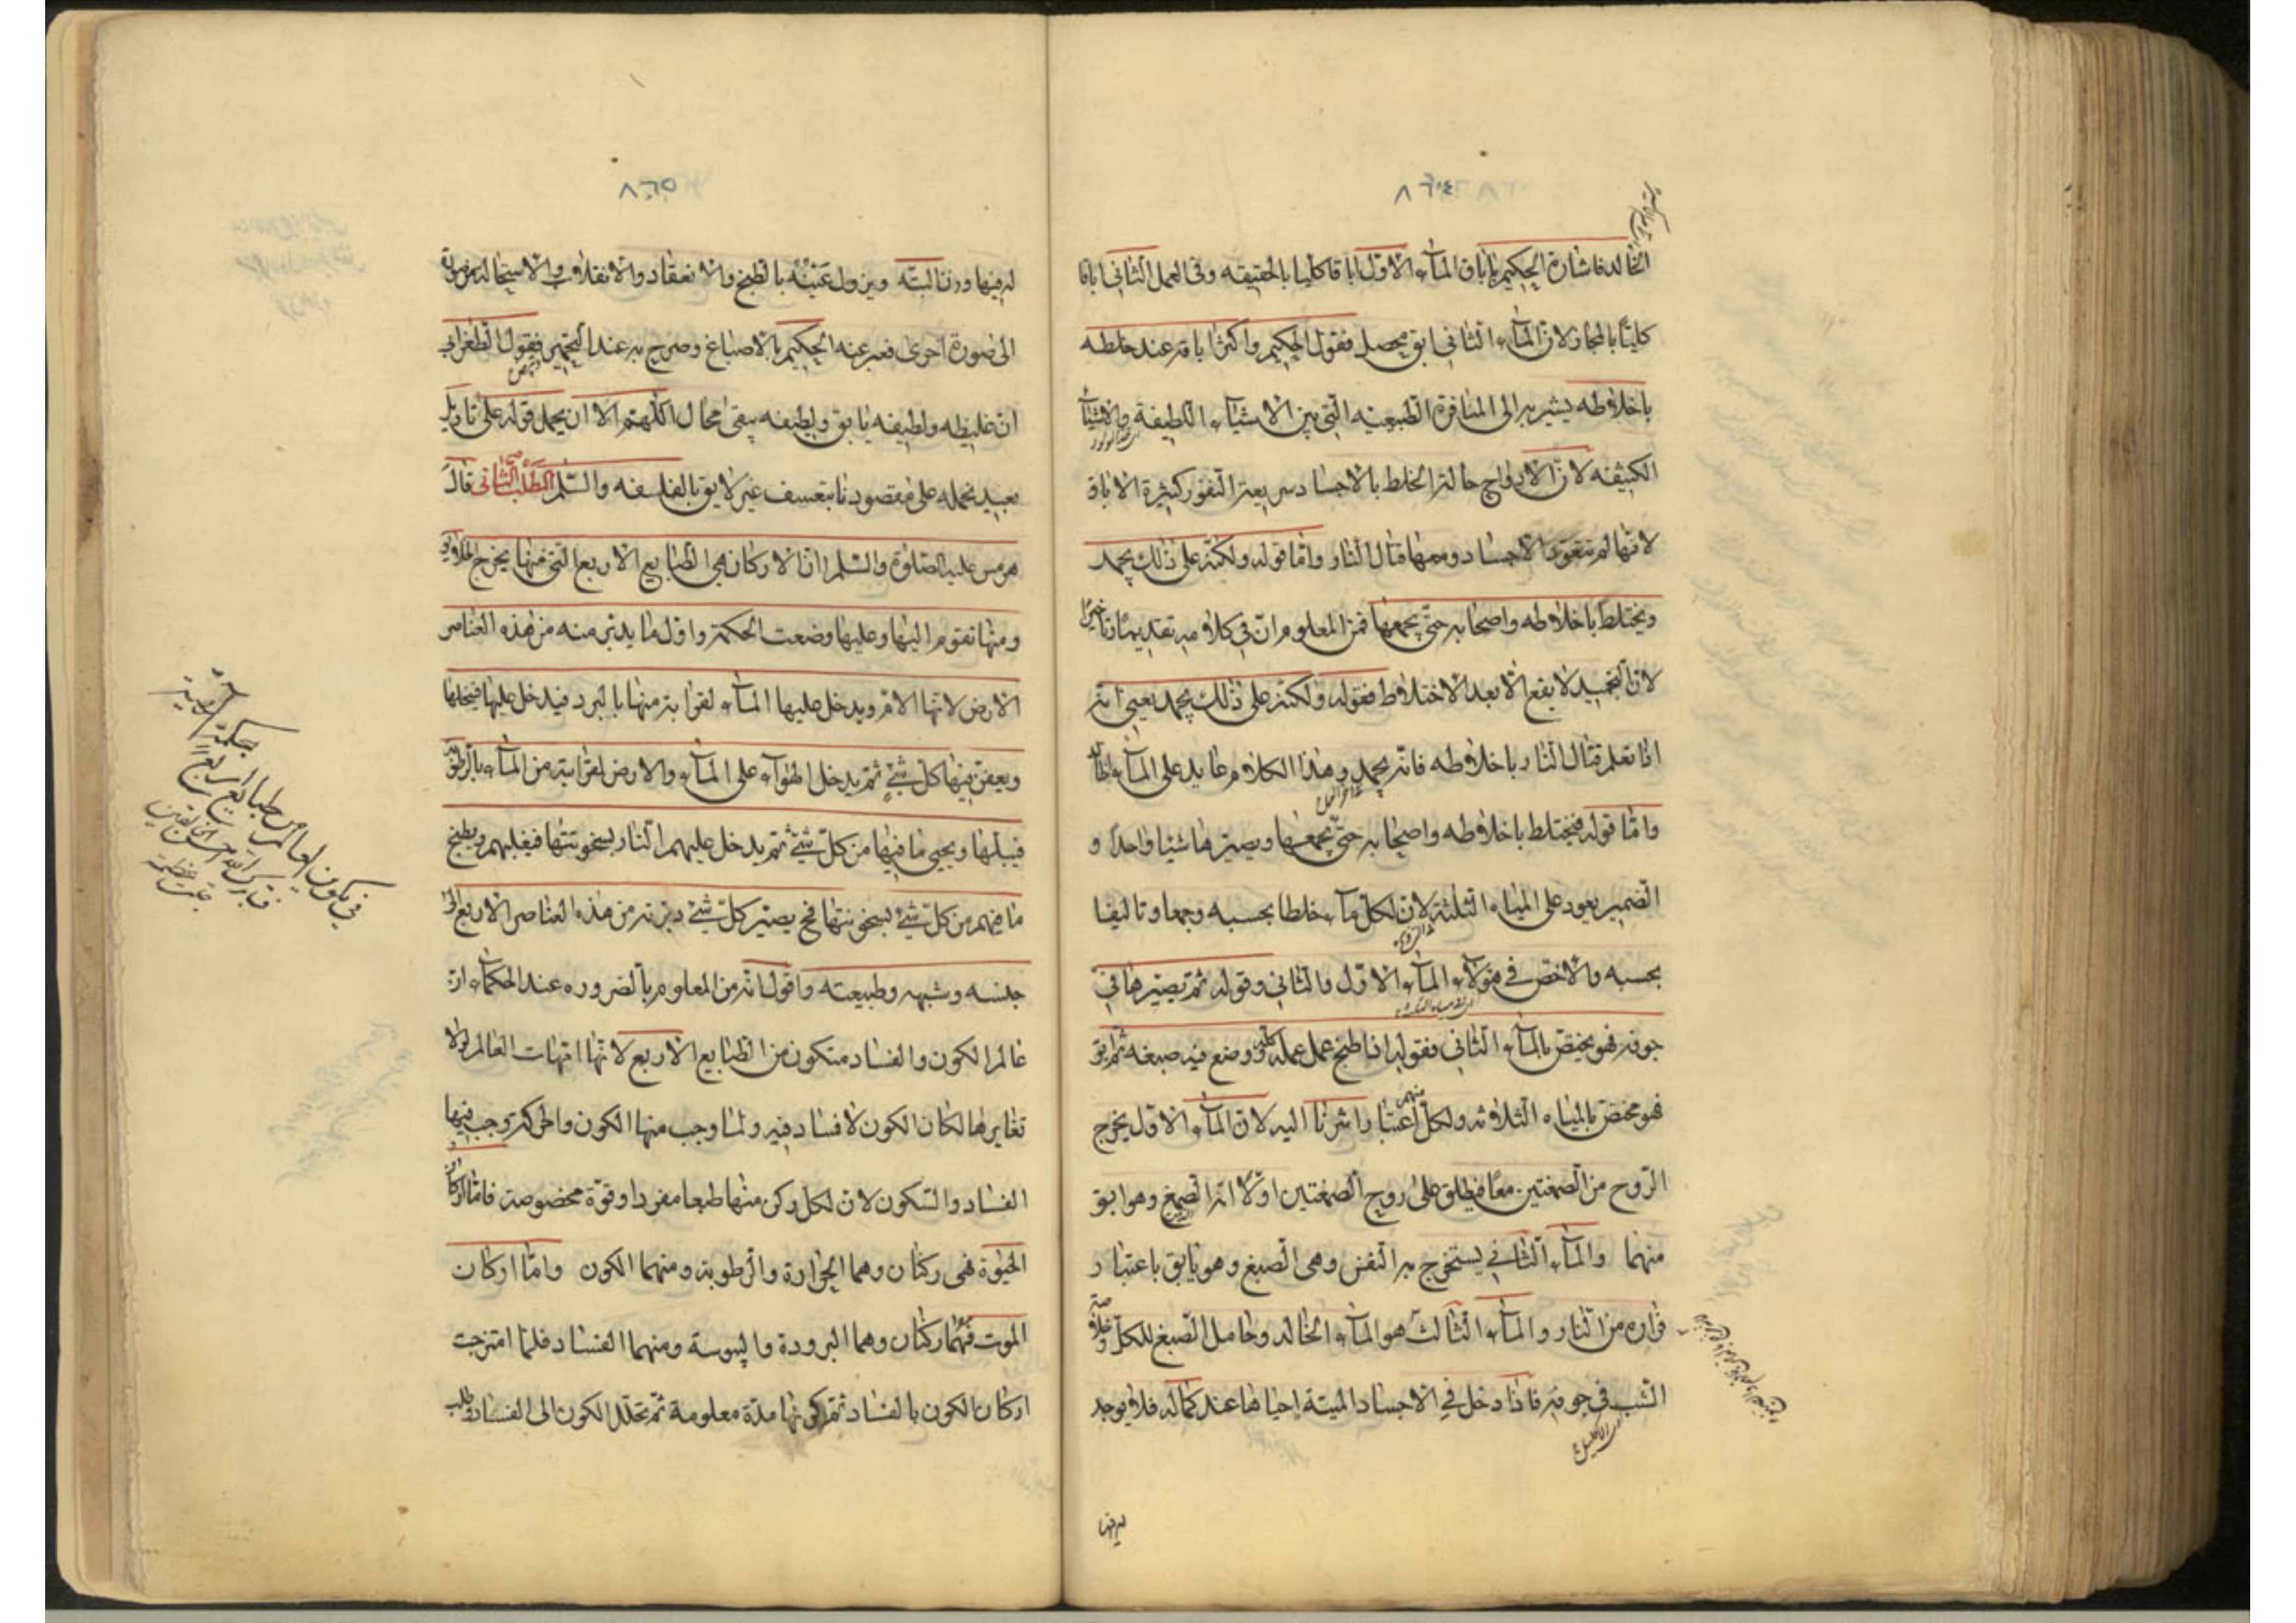 ٨٦٤
الخالد فاشارة الحكيم باباق الماء الاول اباقا كليا بالحقيقه وفى العمل الثانى اباقا
كليّا بالمجاز لان الماء الثانى ابق محصل فقول الحكيم واكثر اباقه عند خلطه
باخلاطه يشير به الى المنافرة الطبيعيه التى بين الاشياء اللطيفة والاشياء
الكثيفه لان الارواح حالة الخلط بالاجساد سريعة النفور كثيرة الاباق
لانها لم تتعود الاجساد ومعها قتال النار واما قوله ولكنه على ذلك يجمد
ويختلط باخلاطه واصحابه حتى يجمعها فمن المعلوم ان فى كلامه تقديمًا وتاخيرًا
لان التجميد لا يقع الا بعد الاختلاط فقوله ولكنه على ذلك يجمد يعنى انه
اذا تعلم قتال النار باخلاطه فانه يجمد وهذا الكلام عايد على الماء الخالد
واما قوله فيختلط باخلاطه واصحابه حتى يجمعها ويصيرها شيئا واحدا و
الضمير يعود على المياه الثلثة لان لكل ماء خلطا بحسبه وجمعا وتاليفا
بحسبه والاخص فى هؤلاء الماء الاول والثانى وقوله ثم تصيرها فى
جوفه فهو يختص بالماء الثانى فقوله اذا طبخ عمل عمله كله ووضع فيه صبغه ثم ابق
فهو مختص بالمياه الثلاثه ولكل منهم اعتبار اشرنا اليه لان الماء الاول يخرج
الروح من الصمغتين معًا فيطلق على روح الصمغتين اولا انه الصمغ وهو ابق
منهما والماء الثانى يستخرج به النفس وهى الصبغ وهو يابق باعتبار
فراره من النار والماء الثالث هو الماء الخالد وحامل الصبغ للكل
الشب فى جوفه فاذا دخل فى الاجساد الميتة احياها عند كماله فلا يوجد
له فيها
٨٦٥
له فيها وزنا البته ويزول عينه بالطبخ والانعقاد والانقلاب والاستحاله من صورة
الى صورة اخرى فعبر عنه الحكيم بالاصباغ وصرح به عند التخمير فقول الطغرايى
ان غليظه ولطيفه يابق ولطيفه يبقى محال اللهم الا ان يحمل قوله على تاويل
بعيد نحمله على مقصودنا بتعسف غير لايق بالفلسفه والسلم المطلب الثانى قال
هرمس عليه الصلوة والسلم ان الاركان هى الطبايع الاربع التى منها يخرج
ومنها تقوم اليها وعليها وضعت الحكمة واول ما يدبر منه من هذه العناصر
الارض لانها الام ويدخل عليها الماء لقرابته منها بالبرد فيدخل عليها فيحلها
ويعفن فيها كل شئ ثم يدخل الهواء على الماء والارض لقرابته من الماء بالرطوبة
فيبلها ويحيى ما فيها من كل شئ ثم يدخل عليهم النار بسخونتها فيغلبهم ويطبخ
ما فيهم من كل شئ بسخونتها فح يصير كل شئ دبرته من هذه العناصر الاربع الى
جنسه وشبهه وطبيعته واقول انه من المعلوم بالضروره عند الحكماء ان
عالم الكون والفساد متكون من الطبايع الاربع لانها امهات العالم لولا
تغايرها لكان الكون لا فساد فيه ولما وجب منها الكون والحركة وجب فيها
الفساد والسكون لان لكل ركن منها طبعا مفردا وقوة مخصوصة فاما اركان
الحيوة فهى ركنان وهما الحرارة والرطوبة ومنهما الكون واما اركان
الموت فهما ركنان وهما البرودة واليبوسة ومنهما الفساد فلما امتزجت
اركان الكون بالفساد تحركن بها مدة معلومة ثم تحلل الكون الى الفساد
فى تكوين العالم من طبايع اربع
بحكمة
فتبارك الله احسن الخالقين
جلت عظمته